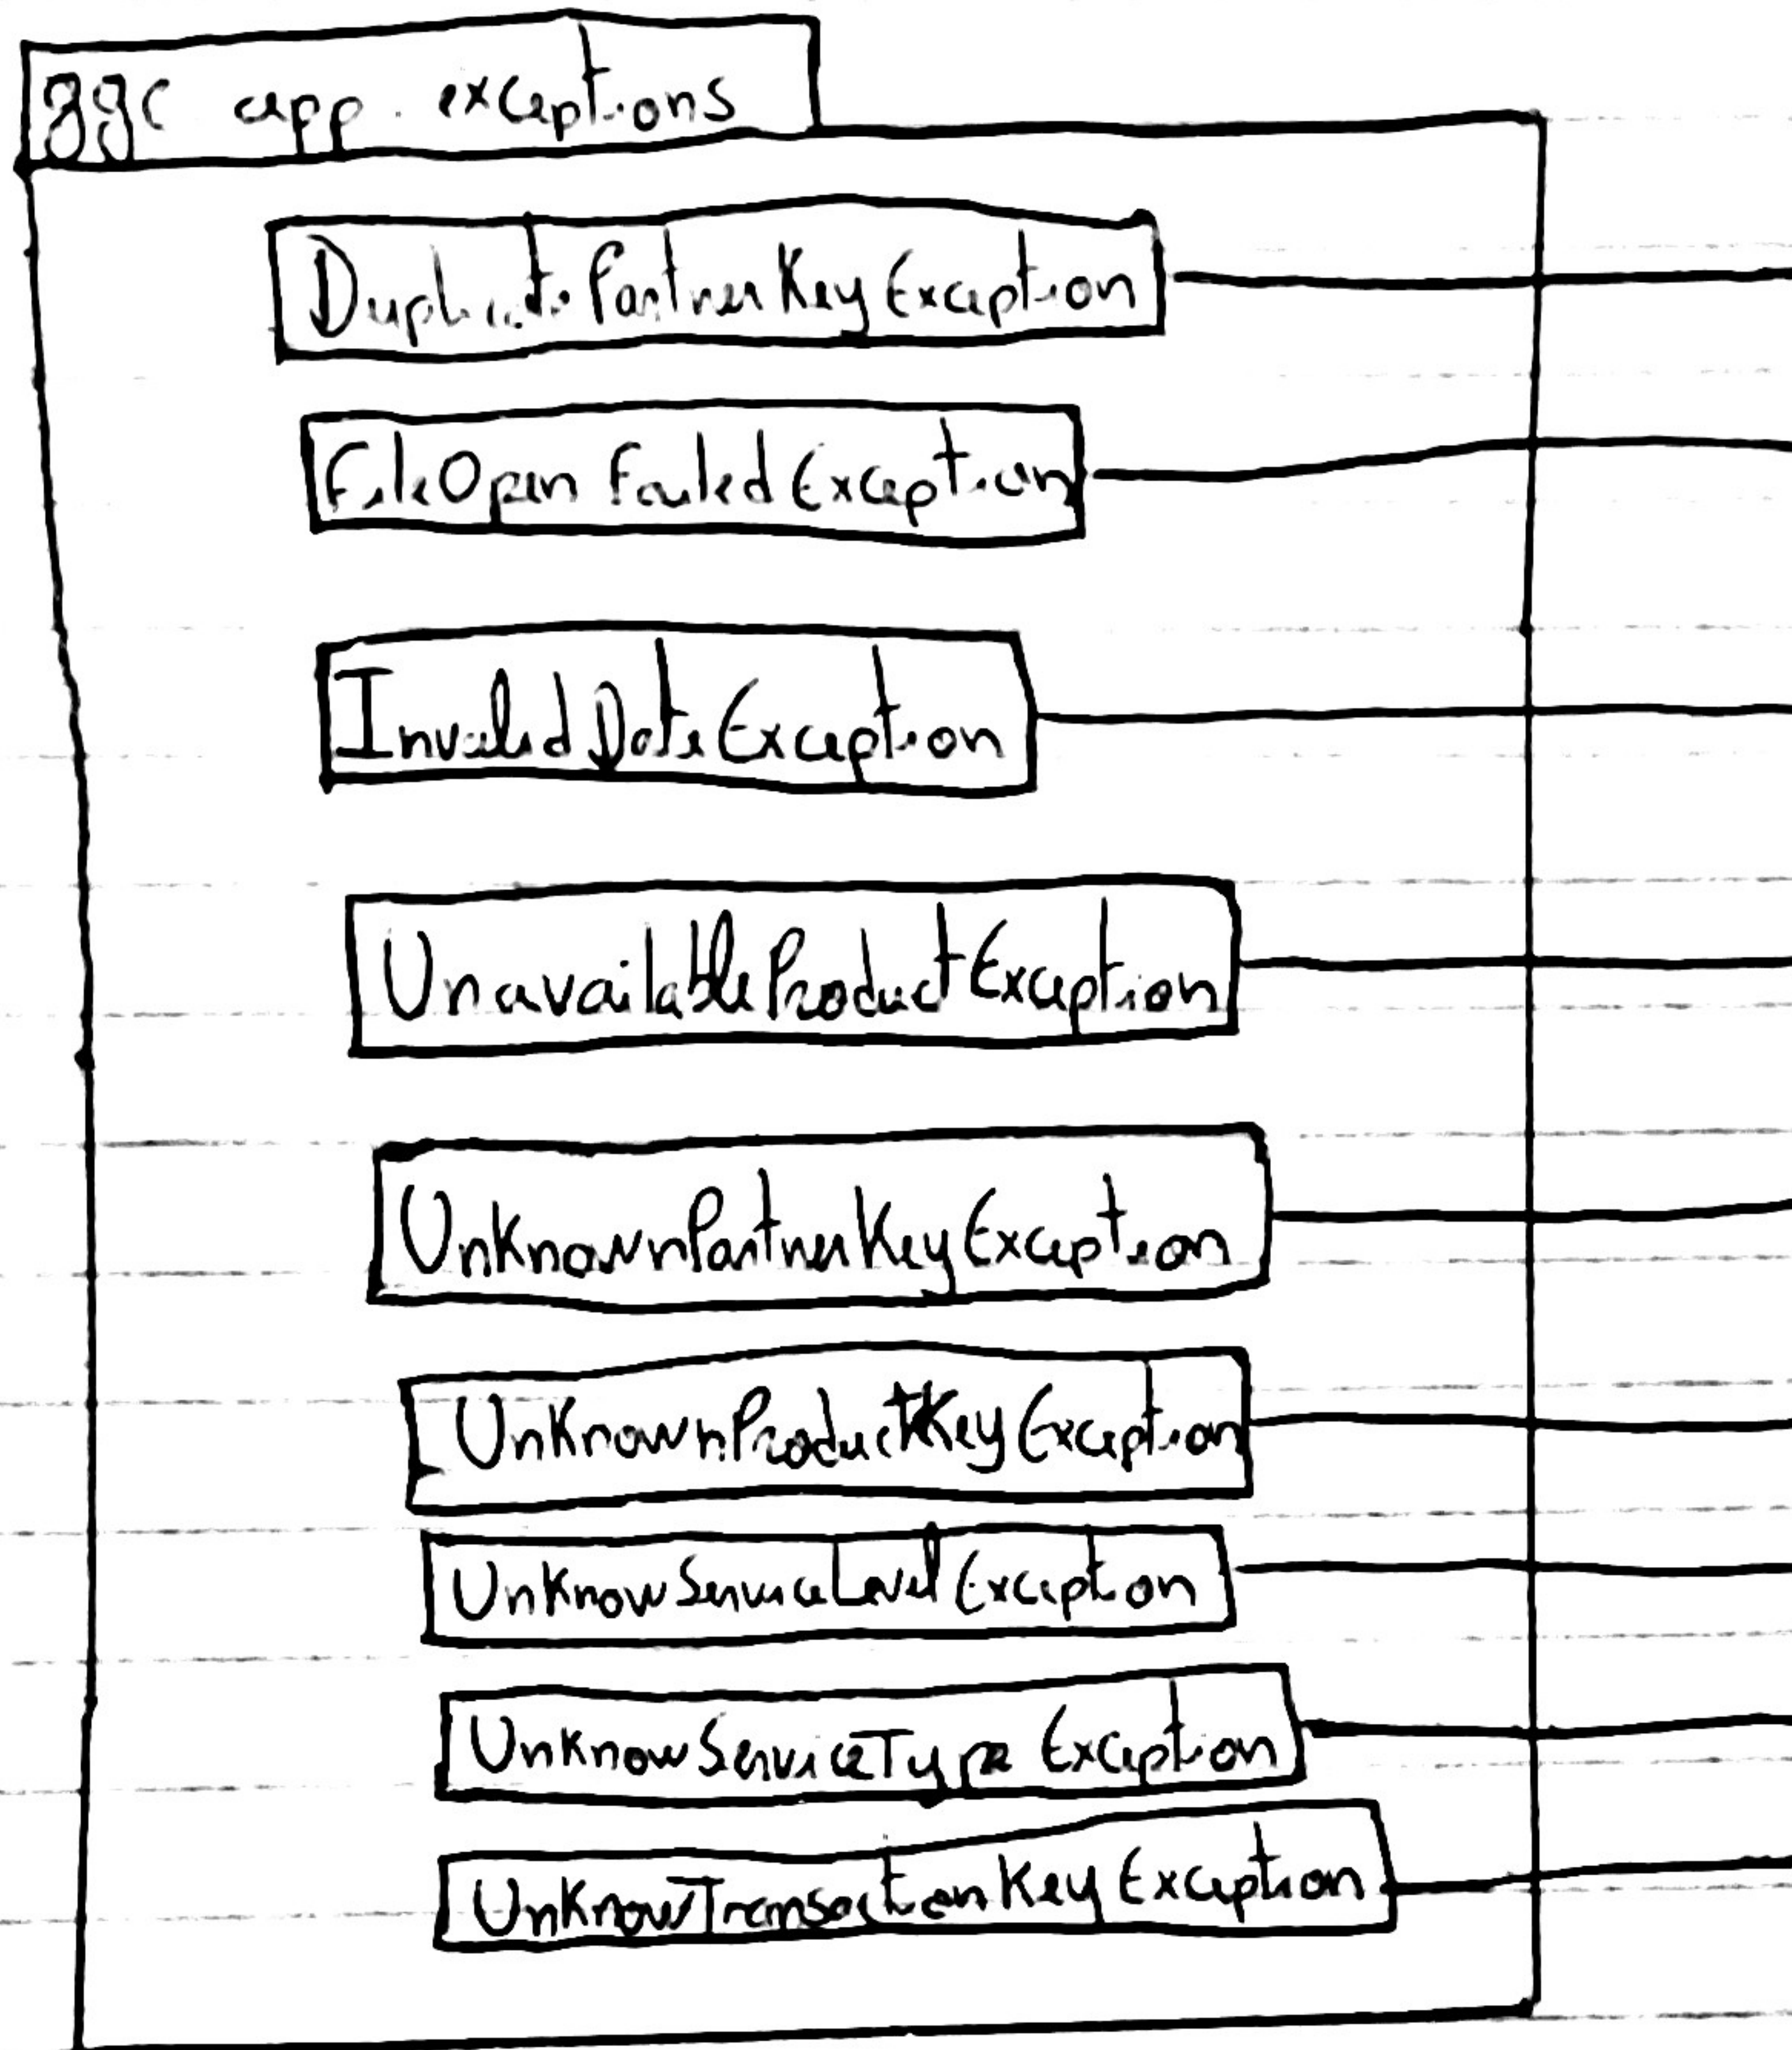 ggc app.exceptions
DuplicatePartnerKeyException
FileOpenFailedException
InvalidDateException
UnavailableProductException
UnKnownPartnerKeyException
UnKnownProductKeyException
UnKnowServiceLevelException
UnKnowServiceTypeException
UnKnowTransactionKeyException